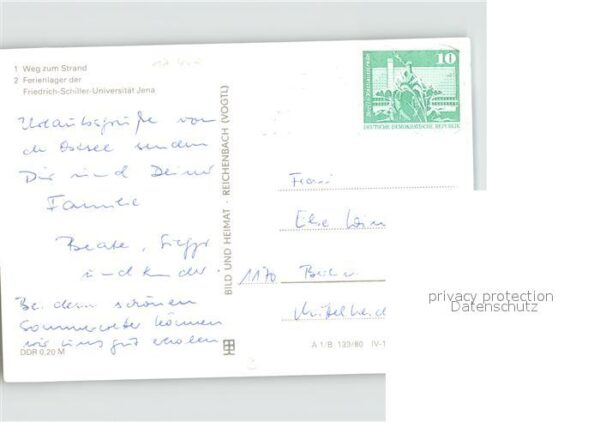 1 Weg zum Strand
2 Ferienlager der
Friedrich-Schiller-Universität Jena
Urlaubsgrüße von
der Ostsee senden
Dir und Deiner
Familie
Beate,
und Kinder.
Bei dem schönen
Sommerwetter können
wir uns gut erholen
DDR 0,20 M
BILD UND HEIMAT · REICHENBACH (VOGTL)
10
DEUTSCHE DEMOKRATISCHE REPUBLIK
Frau
1170 Berlin
A 1/B 139/80 IV-1
privacy protection
Datenschutz